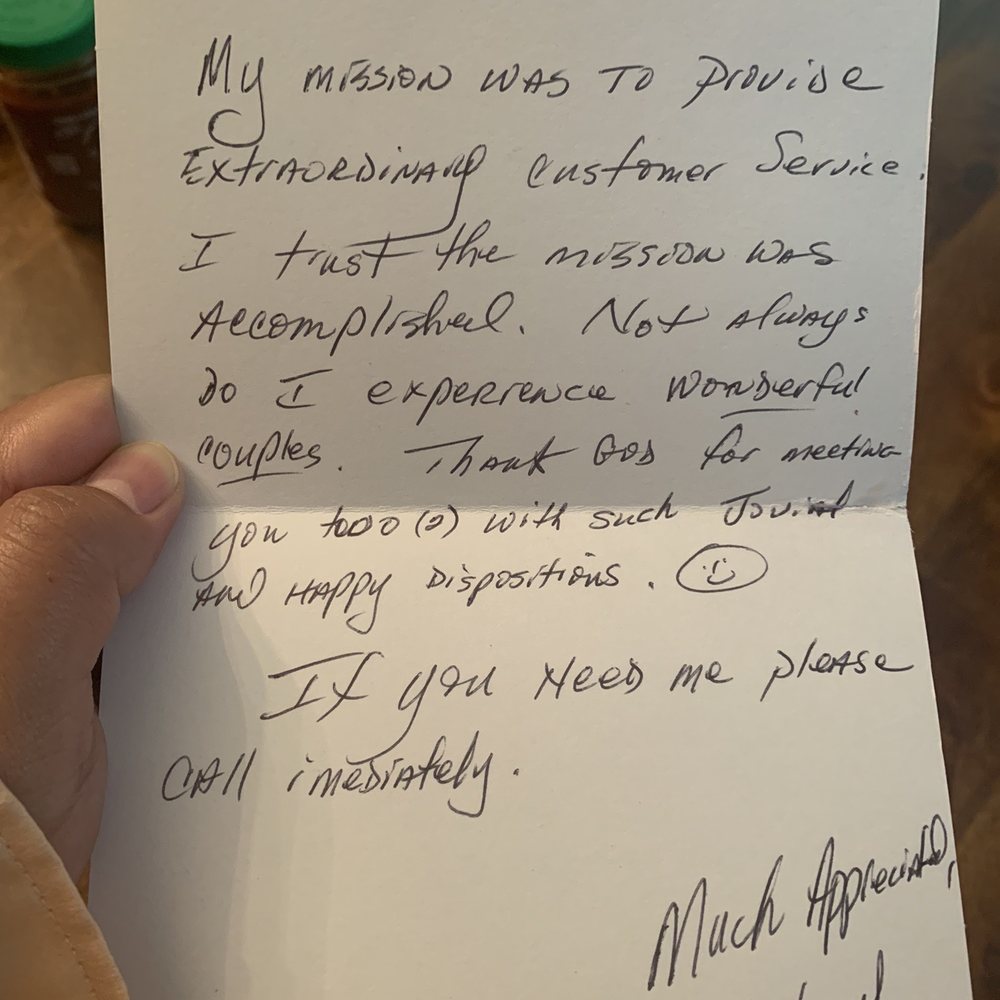 My mission was to provide
Extraordinary Customer Service.
I trust the mission was
Accomplished. Not always
do I experience wonderful
couples. Thank God for meeting
you tooo (2) with such Jovial
and Happy Dispositions. 
If you Need me please
call imediately.
Much Appreciated,